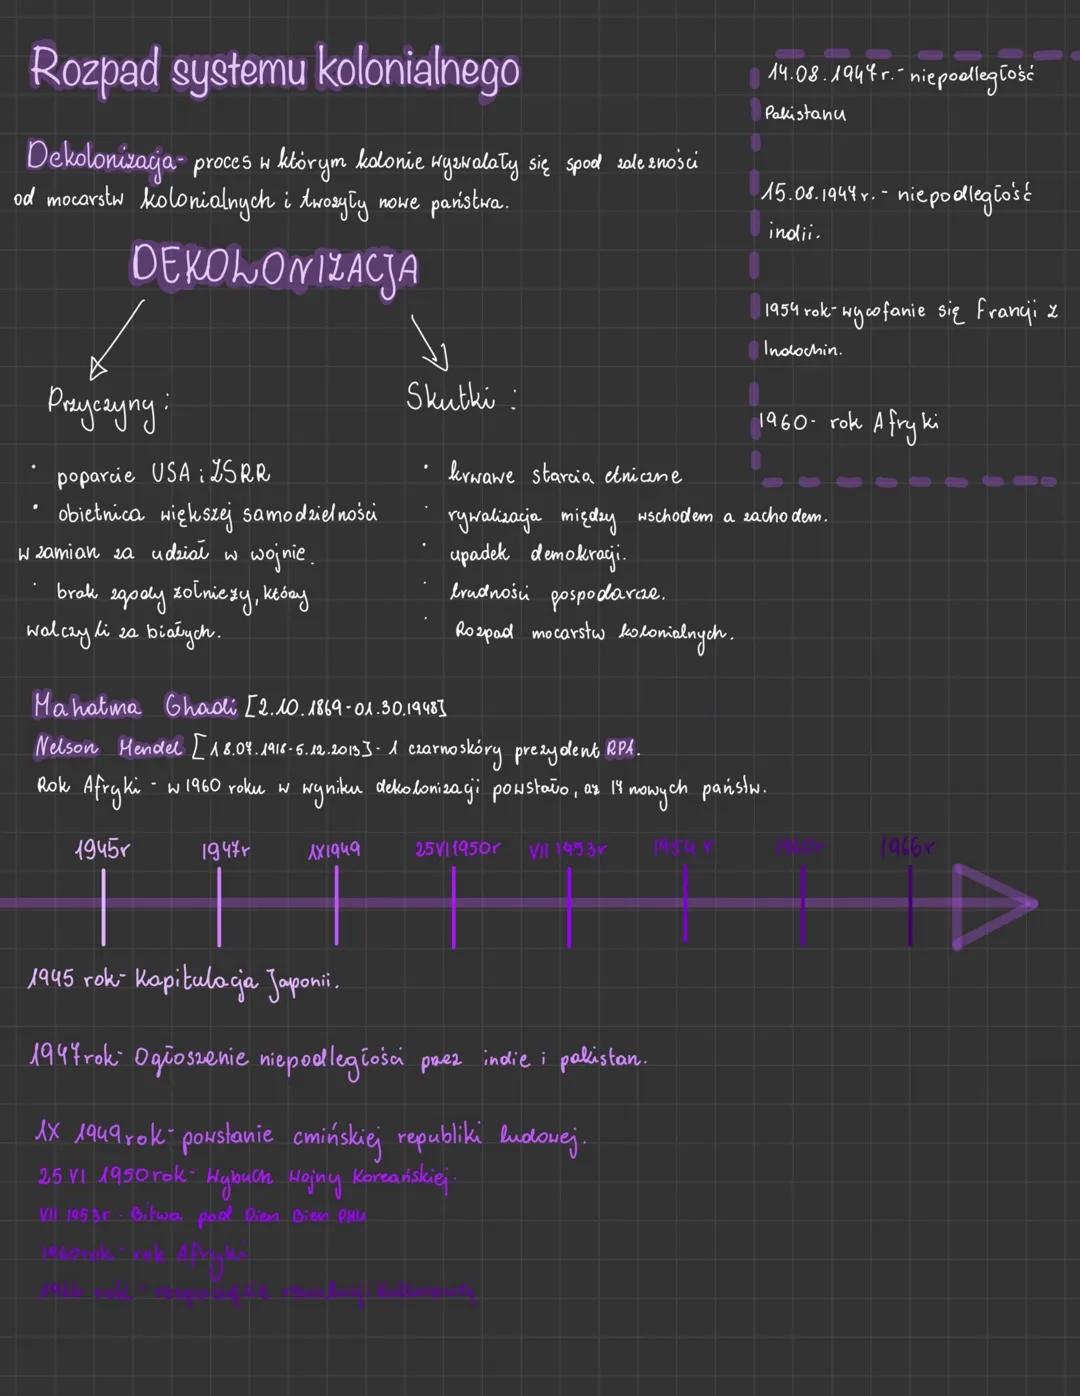 Rozpad systemu kolonialnego
Dekolonizacja- proces w którym kolonie wyzwalały się spod zależności
od mocarstw kolonialnych i tworzyły nowe państwa.
DEKOLONIZACJA
Przyczyny:
• poparcie USA i ZSRR
• obietnica większej samodzielności
w zamian za udział w wojnie.
• brak zgody żołnierzy, którzy
walczyli za białych.
Skutki:
• krwawe starcia etniczne
• rywalizacja między wschodem a zachodem.
• upadek demokracji.
• trudności gospodarcze.
• Rozpad mocarstw kolonialnych.
14.08.1947r.- niepodległość
Pakistanu
15.08.1947r.- niepodległość
indii.
1954 rok- wycofanie się Francji z
Indochin.
1960- rok Afryki
Mahatma Ghadi [2.10.1869-01.30.1948]
Nelson Mendel [18.07.1918-5.12.2013]- 1 czarnoskóry prezydent RPA.
Rok Afryki - w 1960 roku w wyniku dekolonizacji powstało, aż 17 nowych państw.
1945r 1947r IX1949 25VI1950r VII 1953r 1954 r 1960r 1966r
1945 rok- Kapitulacja Japonii.
1947rok- Ogłoszenie niepodległości przez indie i pakistan.
IX 1949rok- powstanie cmińskiej republiki ludowej.
25 VI 1950rok- Wybuch Wojny Koreańskiej.
VII 1953r - Bitwa pod Dien Bien PHU
1960rok- rok Afryki
1966 rok- rozpoczęcie rewolucji kulturowej